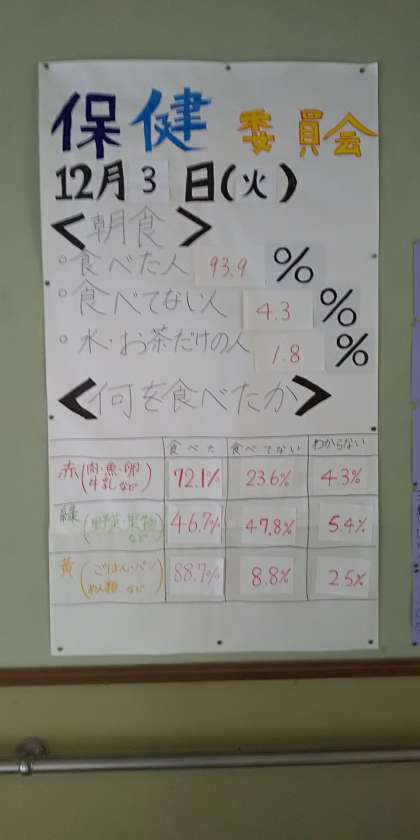 保健委員会
12月3日(火)
<朝食>
○食べた人 93.9%
○食べてない人 4.3%
○水・お茶だけの人 1.8%
<何を食べたか>
食べた 食べてない わからない
赤(肉・魚・卵 牛乳など) 72.1% 23.6% 4.3%
緑(野菜・果物など) 46.7% 47.8% 5.4%
黄(ごはん・パン めん類など) 88.7% 8.8% 2.5%